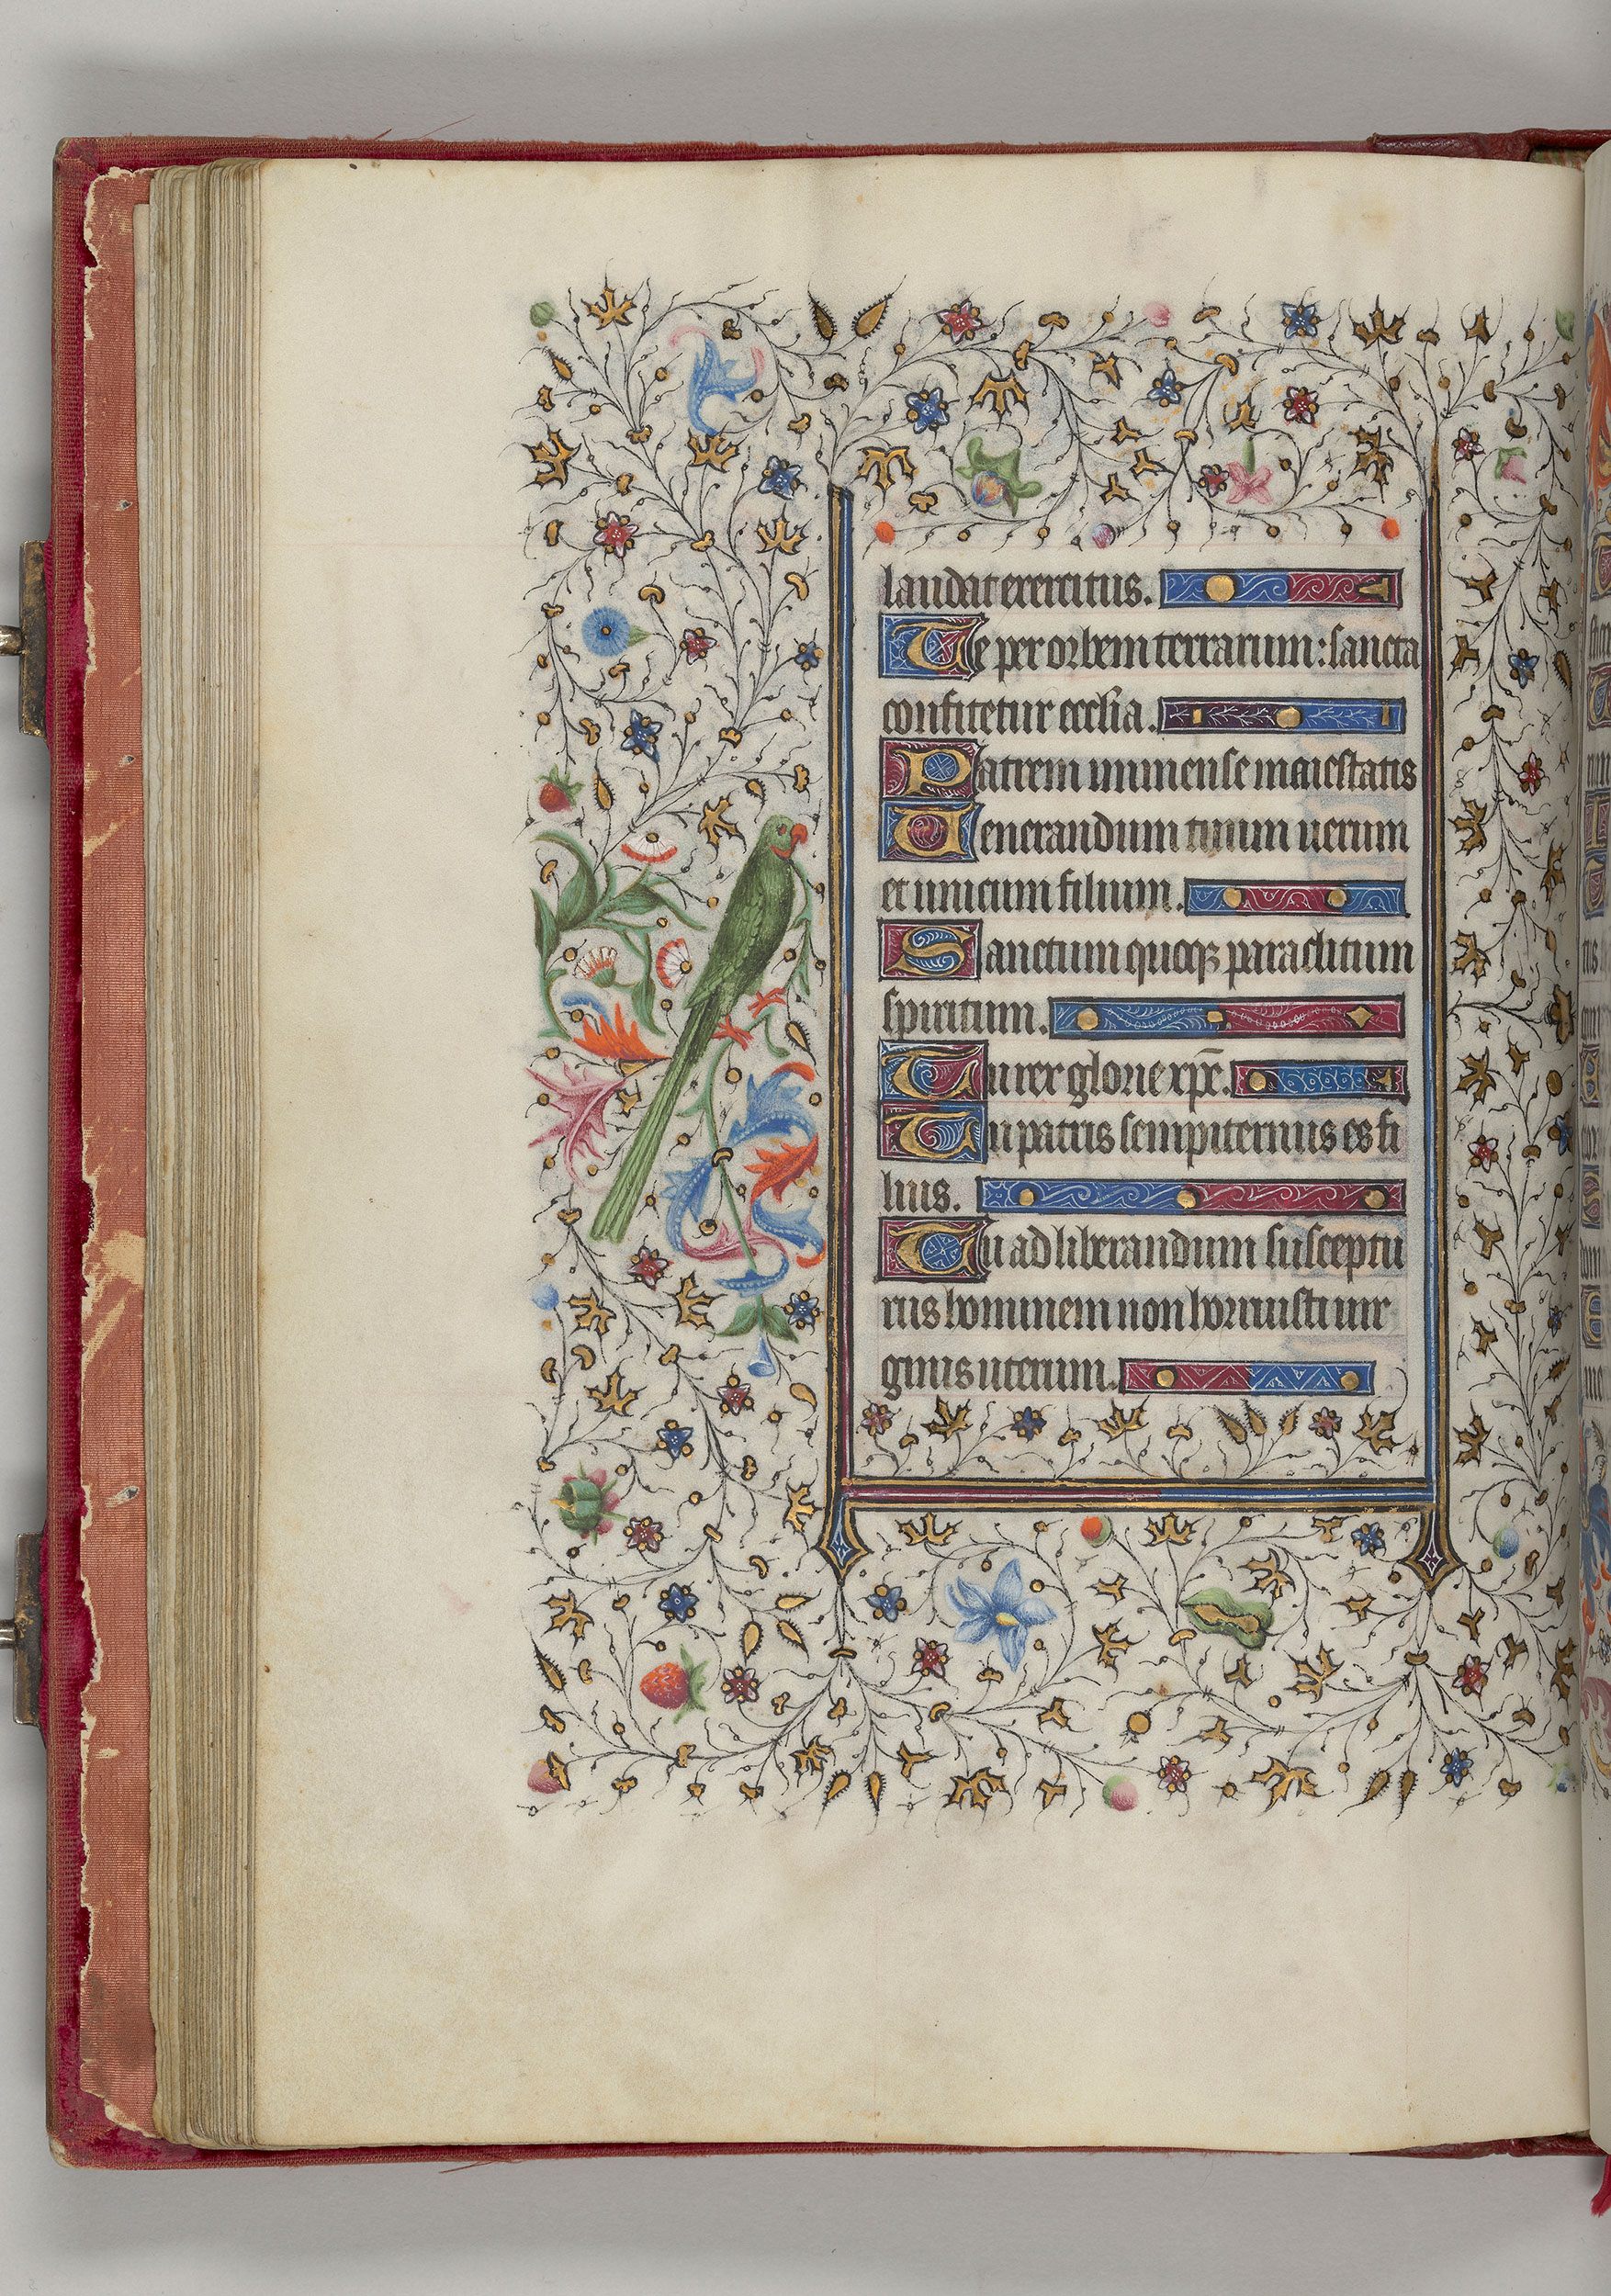 laudat exercitus.
Te per orbem terrarum: sancta
confitetur eccl̄ia.
Patrem immense maiestatis
Uenerandum tuum uerum
et unicum filium.
Sanctum quoqꝫ paraclitum
spiritum.
Tu rex glorie xp̄e.
Tu patris sempiternus es fi
lius.
Tu ad liberandum susceptu
rus hominem non horruisti uir
ginis uterum.